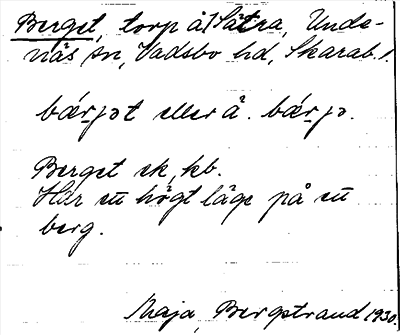 Berget, torp å Sätra, Unde-
näs sn, Vadsbo hd, Skarab. l.
bǽrjət eller å. bǽrjə.
Berget ek. kb.
Har ett högt läge på ett
berg.
Maja Bergstrand 1930.